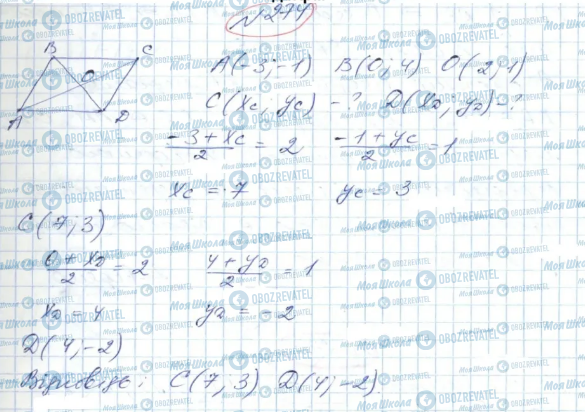 №274
B C
O
A D
A(-3;-1) B(0;4) O(2;1)
C(xc; yc) -? D(xD; yD)-?
(-3+xc)/2 = 2 (-1+yc)/2 = 1
xc = 7 yc = 3
C(7;3)
(0+xD)/2 = 2 (4+yD)/2 = 1
xD = 4 yD = -2
D(4;-2)
Відповідь: C(7;3) D(4;-2).
Моя Школа OBOZREVATEL